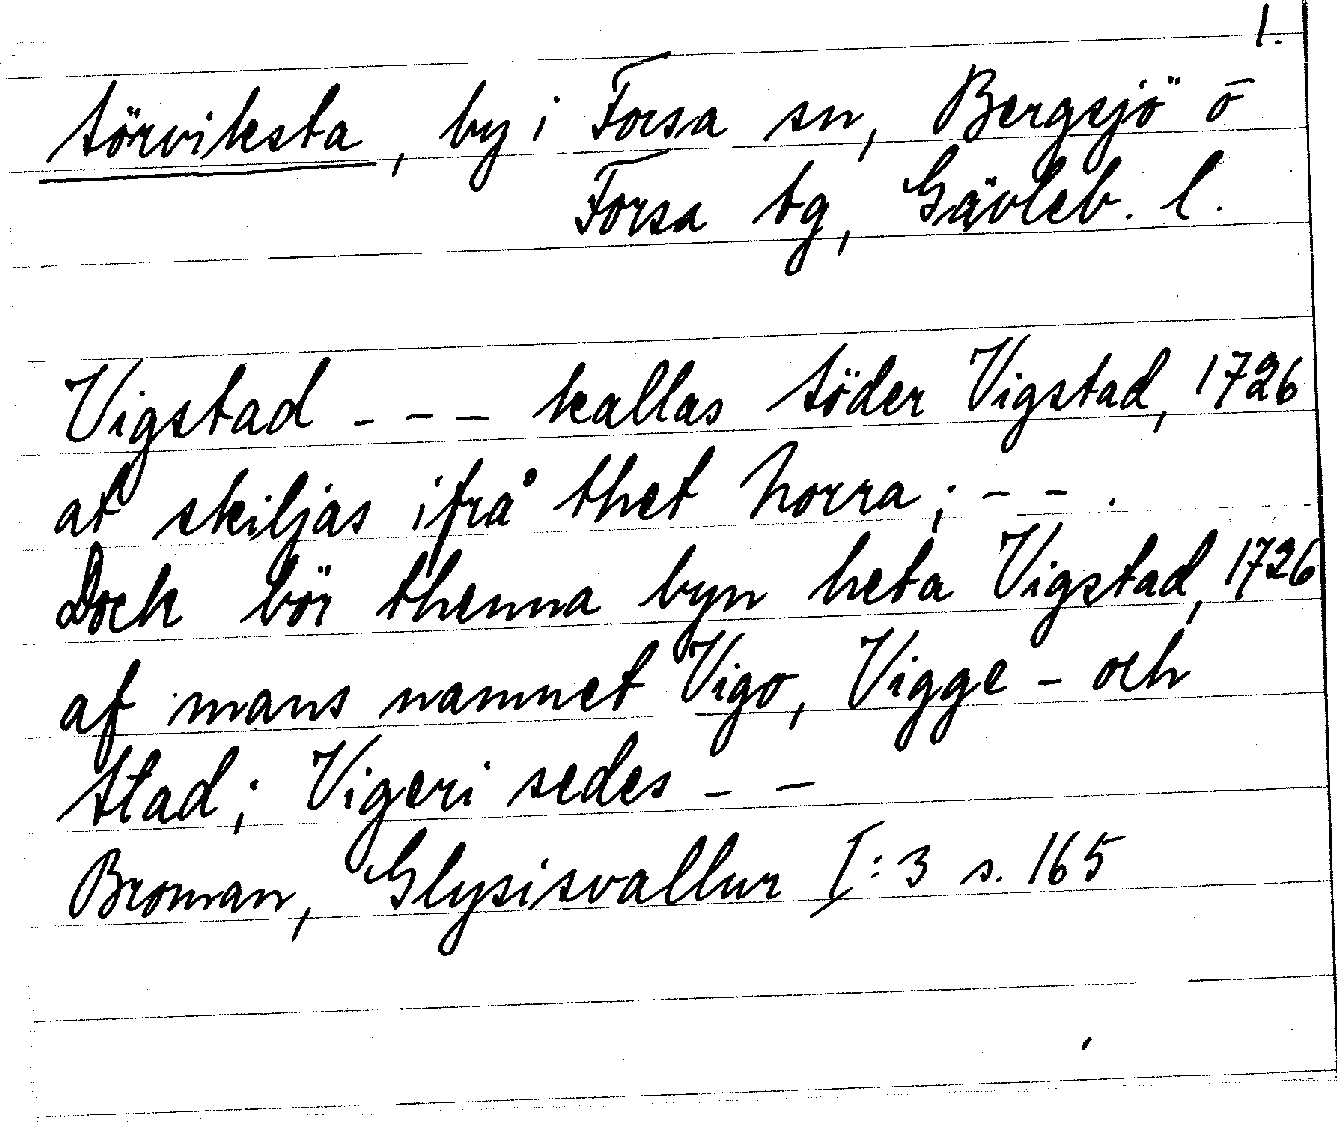 1.
Sörviksta, by i Forsa sn, Bergsjö o
Forsa tg, Gävleb. l.
Vigstad - - - kallas Söder Vigstad, 1726
at skiljas ifrå thet Norra; - - .
Dock bör thenna byn heta Vigstad, 1726
af mans namnet Vigo, Vigge - och
Stad; Vigeri sedes - -
Broman, Glysisvallur I:3 s. 165